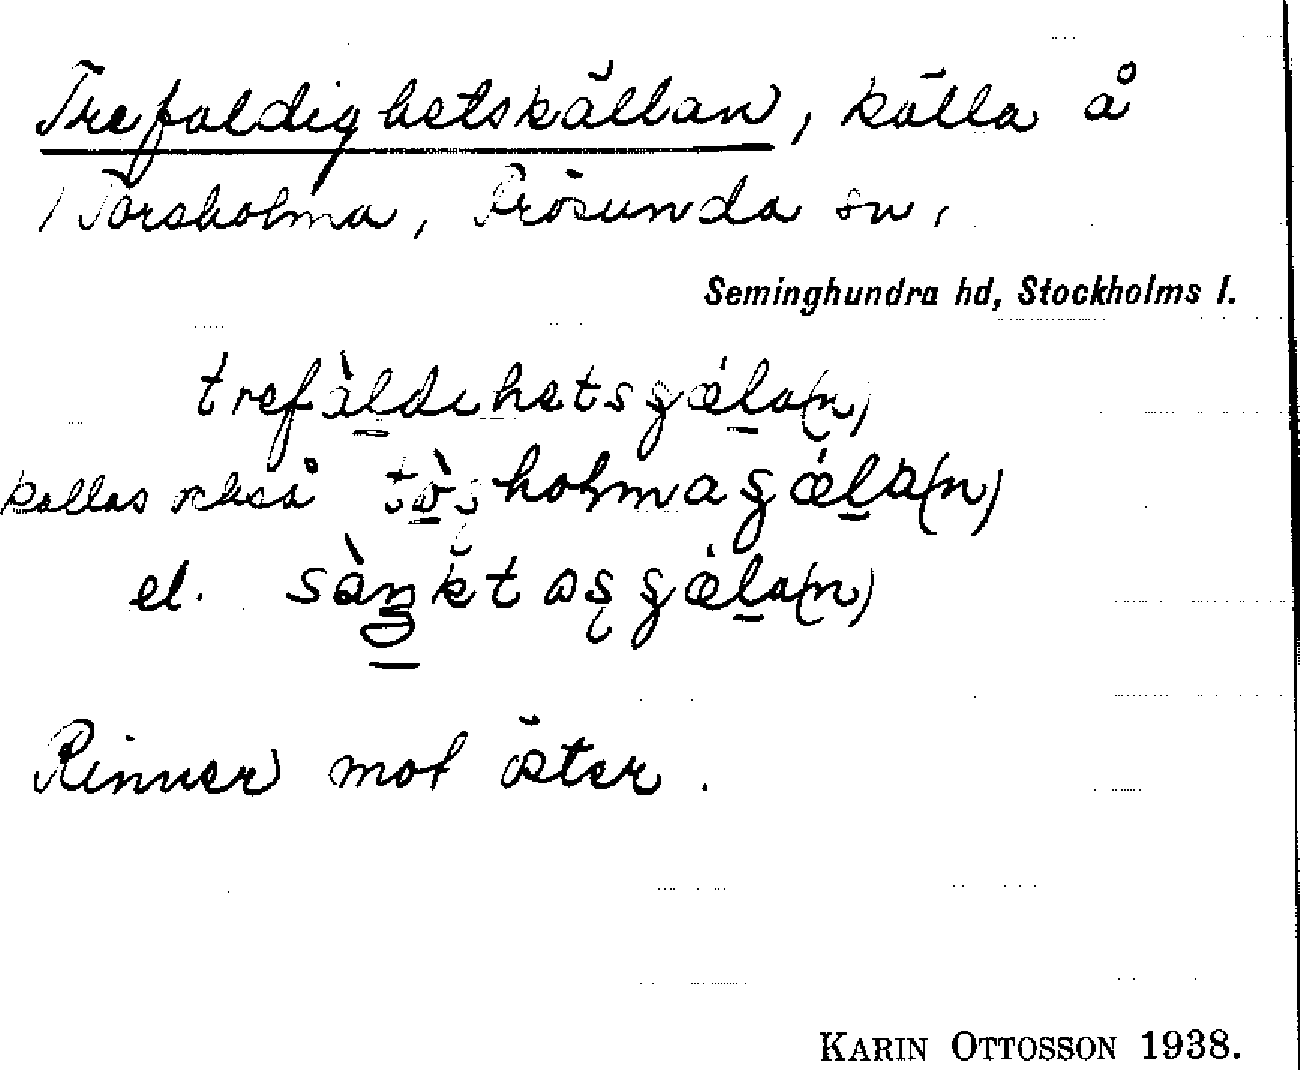 Trefaldighetskällan, källa å
/ Torsholma, Frösunda sn,
Seminghundra hd, Stockholms l.
trefàldihetsgǽla(n)
kallas också tòsholmagǽla(n)
el. sàŋktasgǽla(n)
Rinner mot öster.
KARIN OTTOSSON 1938.